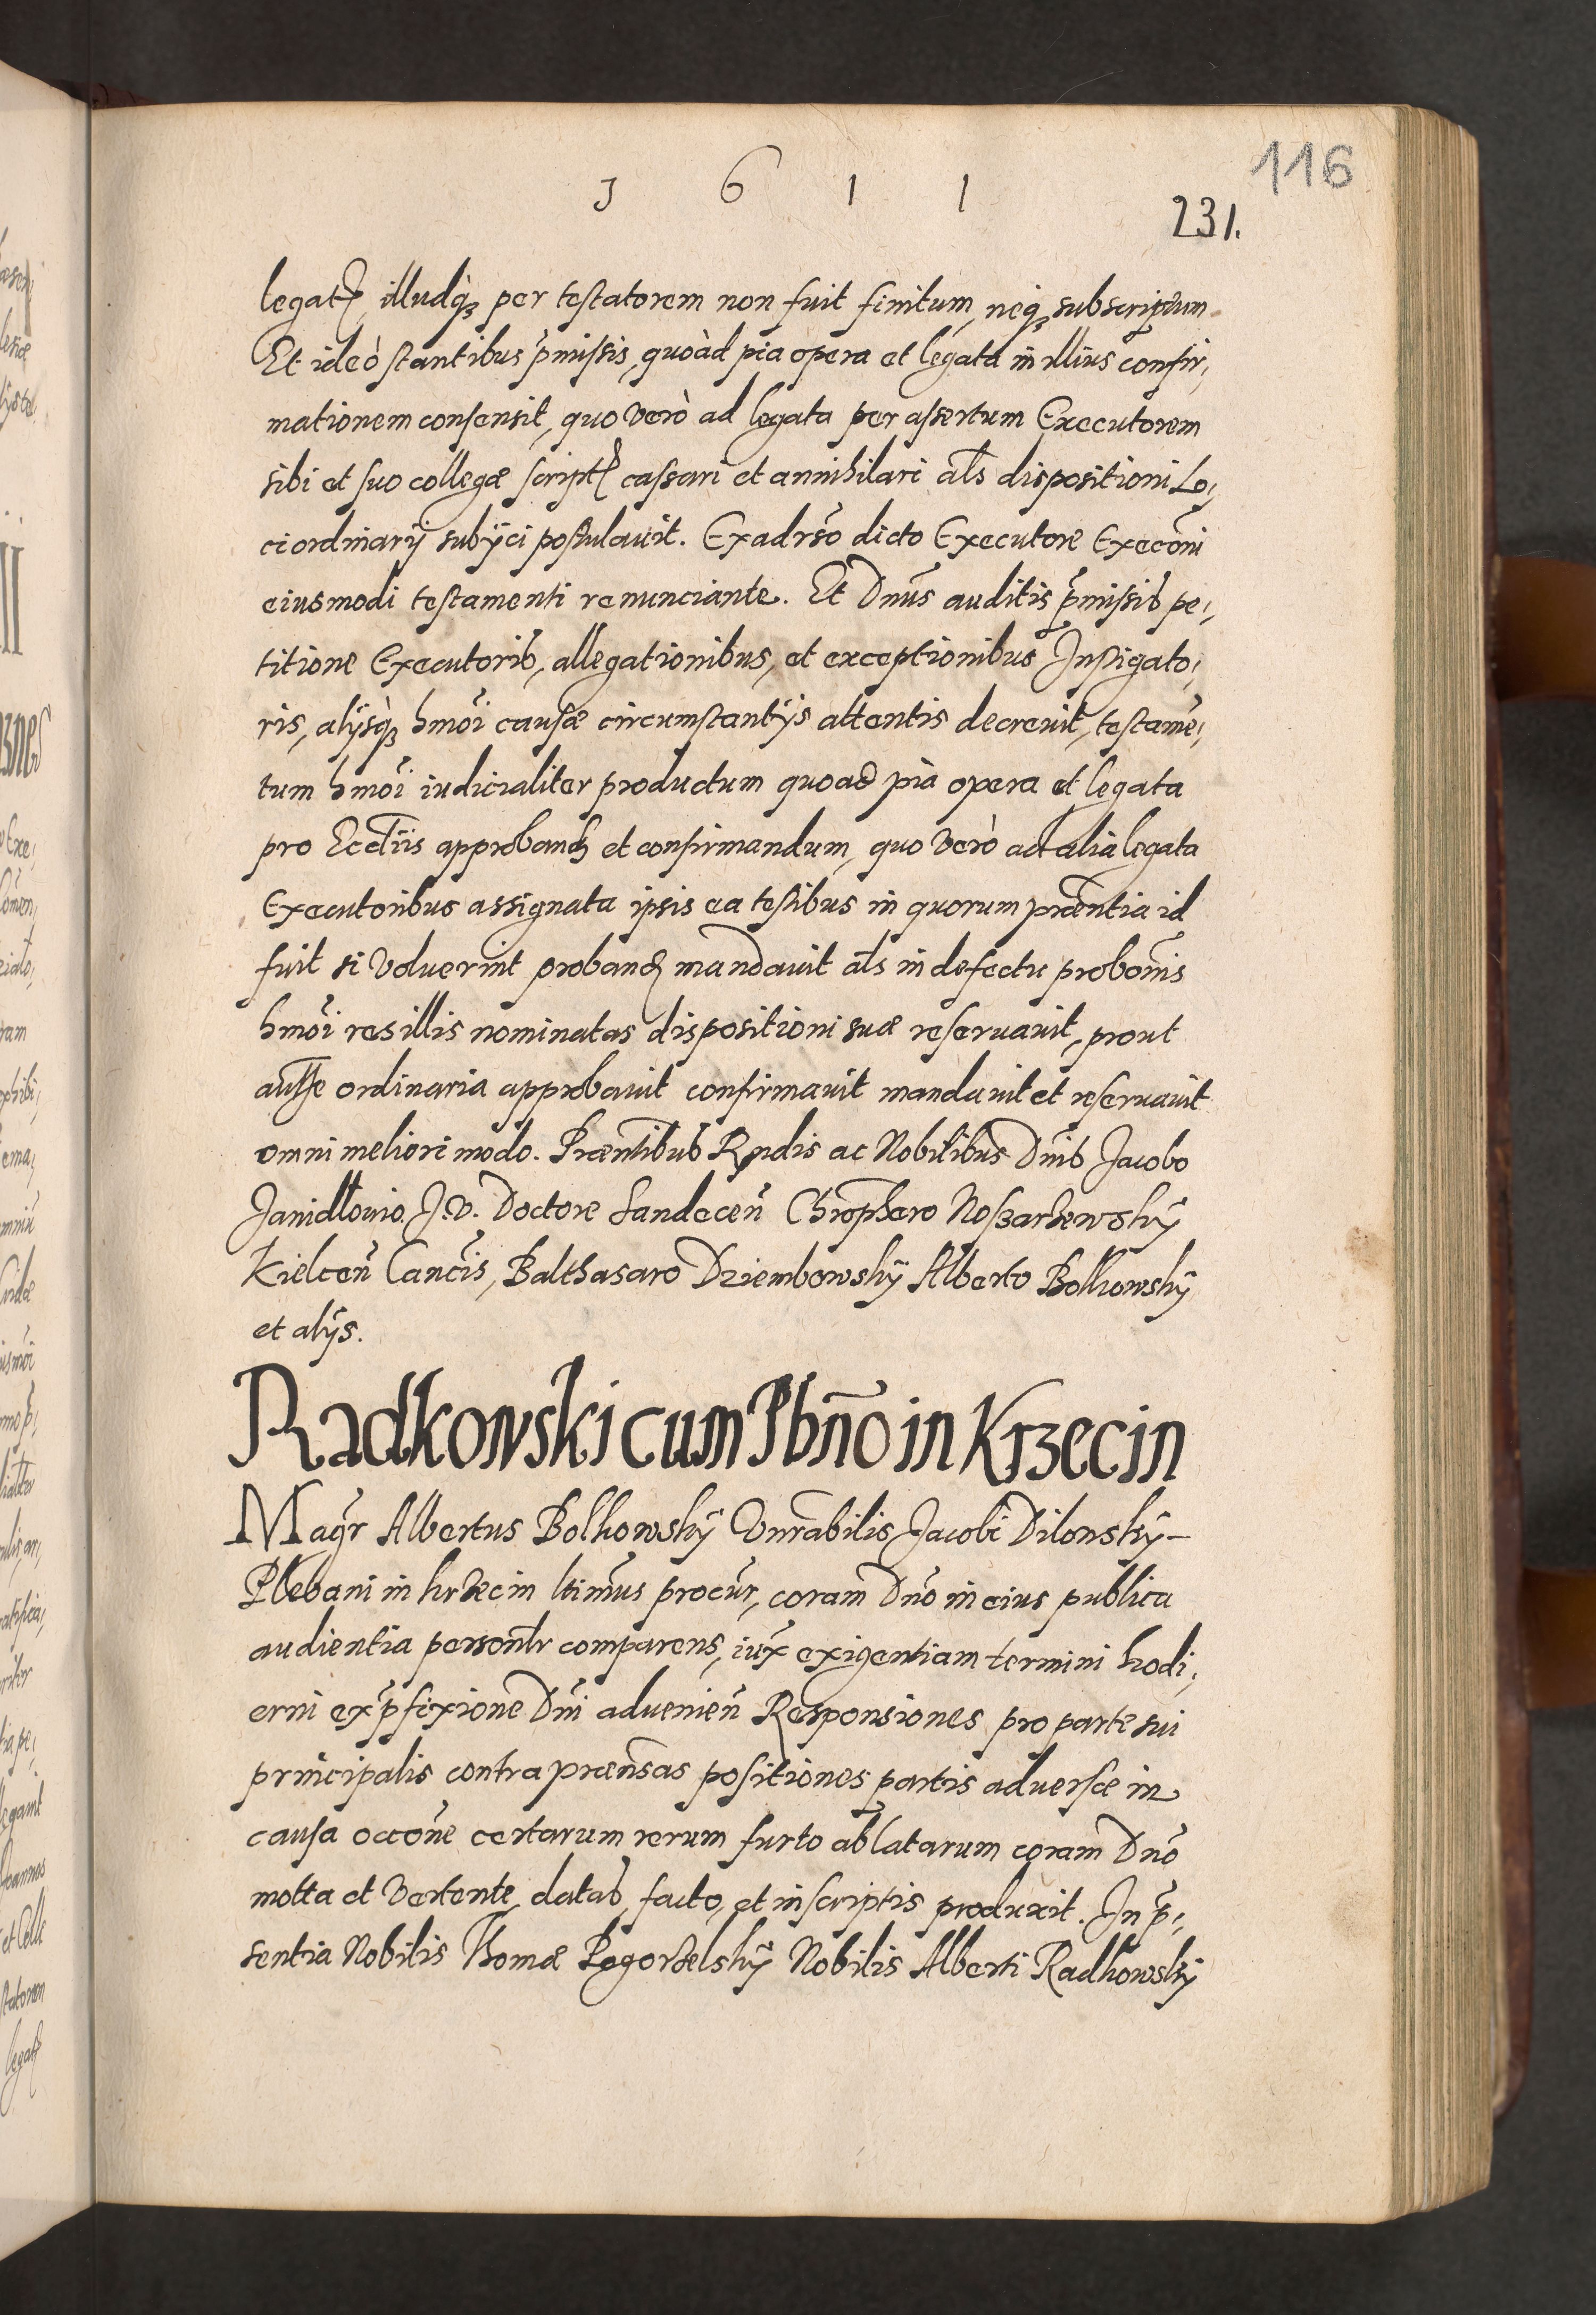 116
1 6 1 1
231.
legatꝭ, illudq̀ꝫ per testatorem non fuit finitum, neqꝫ subscriptum.
Et ideò stantibus p̃missis, quoàd pia opera et legata in illius confir,
mationem consensit, quo verò ad legata per assertum Executorem
sibi et suo collegæ scriptꝭ cassari et annihilari al̃s dispositioni Lo,
ci ordinarÿ subÿci postulauit. Ex adr̃so dicto Executore Exec͠oni
eiusmodi testamenti renunciante. Et Dñus auditis p̃missib pe,
titione Executorib, allegationibus, et exceptionibus Instigato,
ris, alÿsq̀ꝫ hmõi causæ circumstantÿs attentis decreuit, testamẽ,
tum hmõi iudicialiter productum quoad pia opera et legata
pro Eccl̃iis approband̃ et confirmandum, quo verò ad alia legata
Executoribus assignata ipsis ea testibus in quorum præñtia id
fuit si voluerint proband̃ mandauit al̃s in defectu probõnis
hmõi res illis nominatas dispositioni suæ reseruauit, prout
autħe ordinaria approbauit confirmauit mandauit et reseruauit
omni meliori modo. Præñtibus Rndis ac Nobilibus Dñib Jacobo
Janidłouio J.V. Doctore Sandeceñ Chrõphero Noszarzewskÿ
Kielceñ Cancĩs, Balthasaro Dziembowskÿ Alberto Bolkowskÿ
et alÿs.
Radkowski cum Pbño in Krzecin
Magr̃ Albertus Bolkowskÿ Vnr̃abilis Jacobi Dilonskÿ
Plebani in krzecin ltim̃us procur̃, coram Dño in eius publica
audientia person̄lr comparens, iux̃ exigentiam termini hodi,
erni ex p̃fixione Dñi aduenieñ Responsiones pro parte sui
principalis contra præñsas positiones partis aduersæ in
causa occõne certarum rerum furto ablatarum coram Dño
motta et vertente, datas, facto, et in scriptis produxit. In p̃,
sentia Nobilis Thomæ Pogorzelskÿ Nobilis Alberti Radkowskÿ